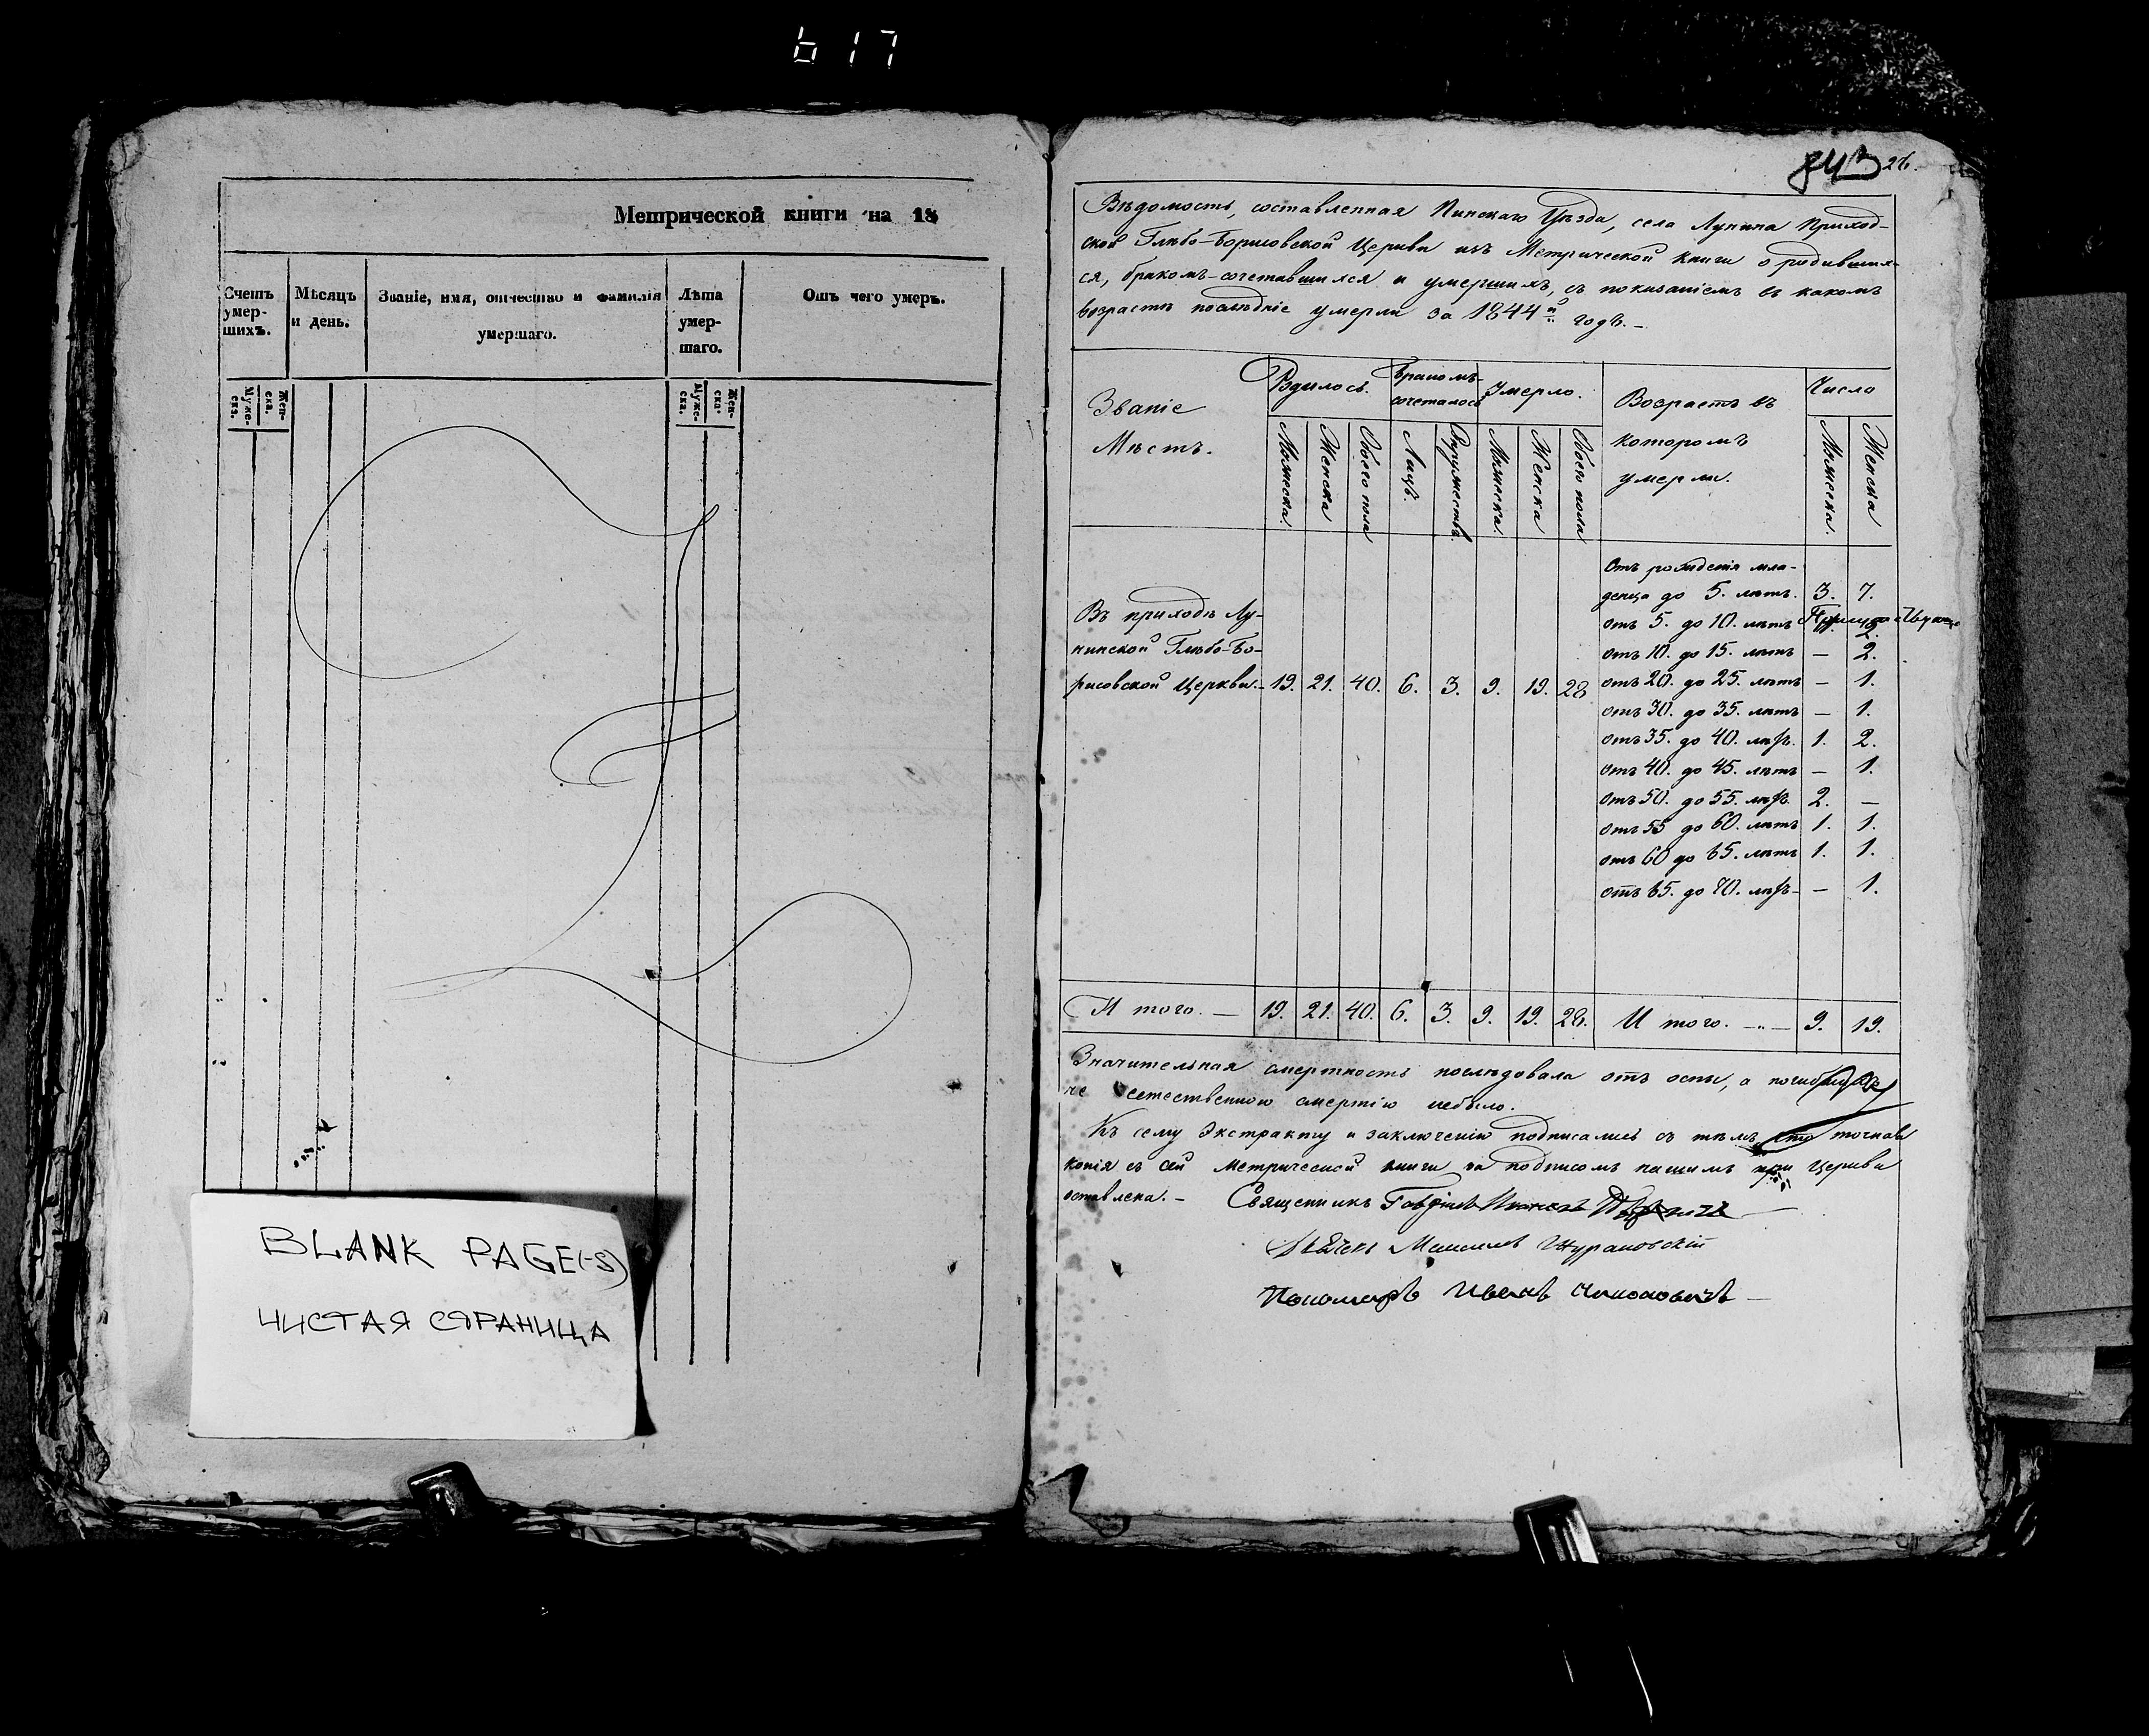 617
Метрической книги на 18
Счетъ умер- шихъ.
Мѣсяцъ и день.
Званіе, имя, отчество и фамилія умершаго.
Лѣта умер- шаго.
Отъ чего умеръ.
Муже- ска.
Жен- ска.
Муже- ска.
Жен- ска.
BLANK PAGE(-S)
ЧИСТАЯ СТРАНИЦА
26.
Вѣдомость, составленная Пинскаго Уѣзда, села Лунина Приход-
ской Глѣбо-Борисовской Церкви изъ Метрической книги о родивших-
ся, бракомъ-сочетавшихся и умершихъ, съ показаніемъ въ какомъ
возрастѣ послѣдніе умерли за 1844й годъ. –
Званіе Мѣстъ.
Родилось.
Бракомъ- сочеталось
Умерло.
Возрастъ въ которомъ умерли.
Числа
Мужеска.
Женска
Обоего пола
Лицъ.
Супружествъ.
Мужеска.
Женска
Обоего пола
Мужеска.
Женска
Отъ рожденія мла-
денца до 5. лѣтъ. 3. 7.
отъ 5. до 10. лѣтъ 2.
отъ 10. до 15. лѣтъ — 2.
отъ 20. до 25. лѣтъ — 1.
отъ 30. до 35. лѣтъ — 1.
отъ 35. до 40. лѣтъ. 1. 2.
отъ 40. до 45. лѣтъ — 1.
отъ 50. до 55. лѣтъ. 2. —
отъ 55 до 60. лѣтъ 1. 1.
отъ 60 до 65. лѣтъ 1. 1.
отъ 65. до 70. лѣтъ — 1.
Въ приходѣ Лу-
нинской Глѣбо-Бо-
рисовской Церкви. 19. 21. 40. 6. 3. 9. 19. 28
И того. — 19. 21. 40. 6. 3. 9. 19. 28. И того. — 9. 19.
Значительная смертность послѣдовала отъ оспы, а
не естественною смертію небыло.
Къ сему Экстракту и заключенію подписались съ тѣмъ, что точная
копія съ сей Метрической книги за подписомъ нашимъ при Церкви
оставлена. – Священникъ
Журановскій
Пономарь Иванъ